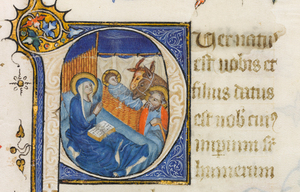 PUer natus
est nobis et
filius datus
est nob cuiꝰ
imperium
humerum